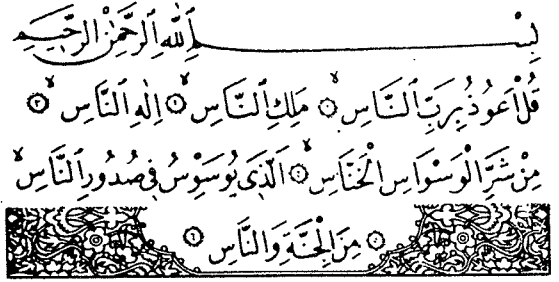 بِسْمِ اللّٰهِ الرَّحْمٰنِ الرَّحِيمِ
قُلْ اَعُوذُ بِرَبِّ النَّاسِ ۙ ﴿١﴾ مَلِكِ النَّاسِ ۙ ﴿٢﴾ اِلٰهِ النَّاسِ ۙ ﴿٣﴾
مِنْ شَرِّ الْوَسْوَاسِ الْخَنَّاسِ ۙ ﴿٤﴾ اَلَّذِى يُوَسْوِسُ فِى صُدُورِ النَّاسِ ۙ
﴿٥﴾ مِنَ الْجِنَّةِ وَالنَّاسِ ﴿٦﴾